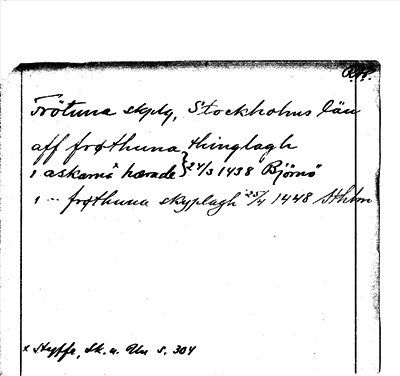 Frötuna skplg, Stockholms län
aff frøthuna thinglagh
i askarnä hærade } 24/3 1438 Björnö
i -- frøthuna skyplagh 25/4 1448 Sthlm
x Styffe, Sk. u. Un s. 304